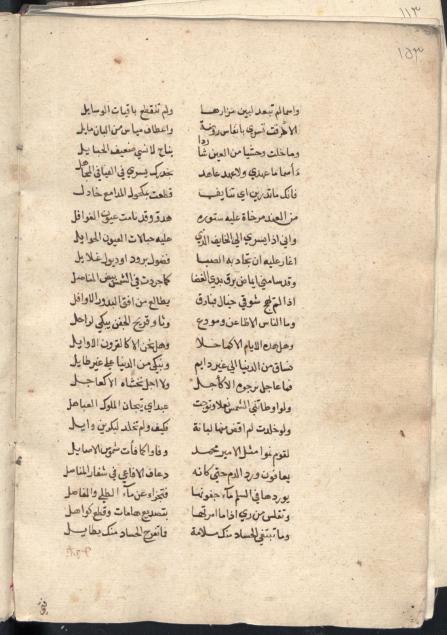 ١١٣
١٥٣
واسما لم تبعد لبين مزارها ولم تنقطع باقيات الوسايل
الا طرقت تسري بانفاس روضة واعطاف مياس من البان مايل
وما خلت وحشيا من العين شاردا يتاح لانسي ضعيف الحبايل
أاسما ما عهدي ولا عهد عاهد بخدرك يسري في الفيافي المجاهل
فانك ما تدرين اي تنايف قطعت مكحول المدامع خاذل
من السعد مرخاة عليه ستوره هدوّ وقد نامت عيون الغوافل
واني اذا يسري الى الخايف الذي عليه حبالات العيون الحوايل
اغار عليه ان تجاذبه الصبا فضول برود او ذيول غلايل
وقد ساءني ايماض برق بذي الغضا كما جردت في الشمس بيض المناصل
اذا لم تهج شوقي خيال بارق يطالع من افق البدور الاوافل
وما الناس الا ظاعن ومودع وثاو قريح الجفن يبكي لراحل
وهل هذه الايام الا كما خلا وهل نحن الا كالقرون الاوايل
نساق من الدنيا الى غير دايم ونبكي من الدنيا على غير طايل
فما عاجل نرجوه الا كآجل ولا اجل نخشاه الا كعاجل
ولو اوطاتني الشمس نعلا وتوجت عبداي تيجان الملوك العباهل
ولو خلدت لم اقض منها لبانة فكيف ولم تخلد لبكر بن وايل
لقوم نموا مثل الامير محمد وفاوا كافات شموس الاصايل
يعافون ورد الدم حتى كانه ذعاف الافاعي في شفار المناصل
يوردها في السلم ماء جفونها فتجزاوعن ماء الطلى والمفاصل
وتفلس من ري اذا ما امرتها بتصديع هامات وقطع كواهل
وما تبتغي الحساد منك سلامة فما تبرح الحساد منك بطايل